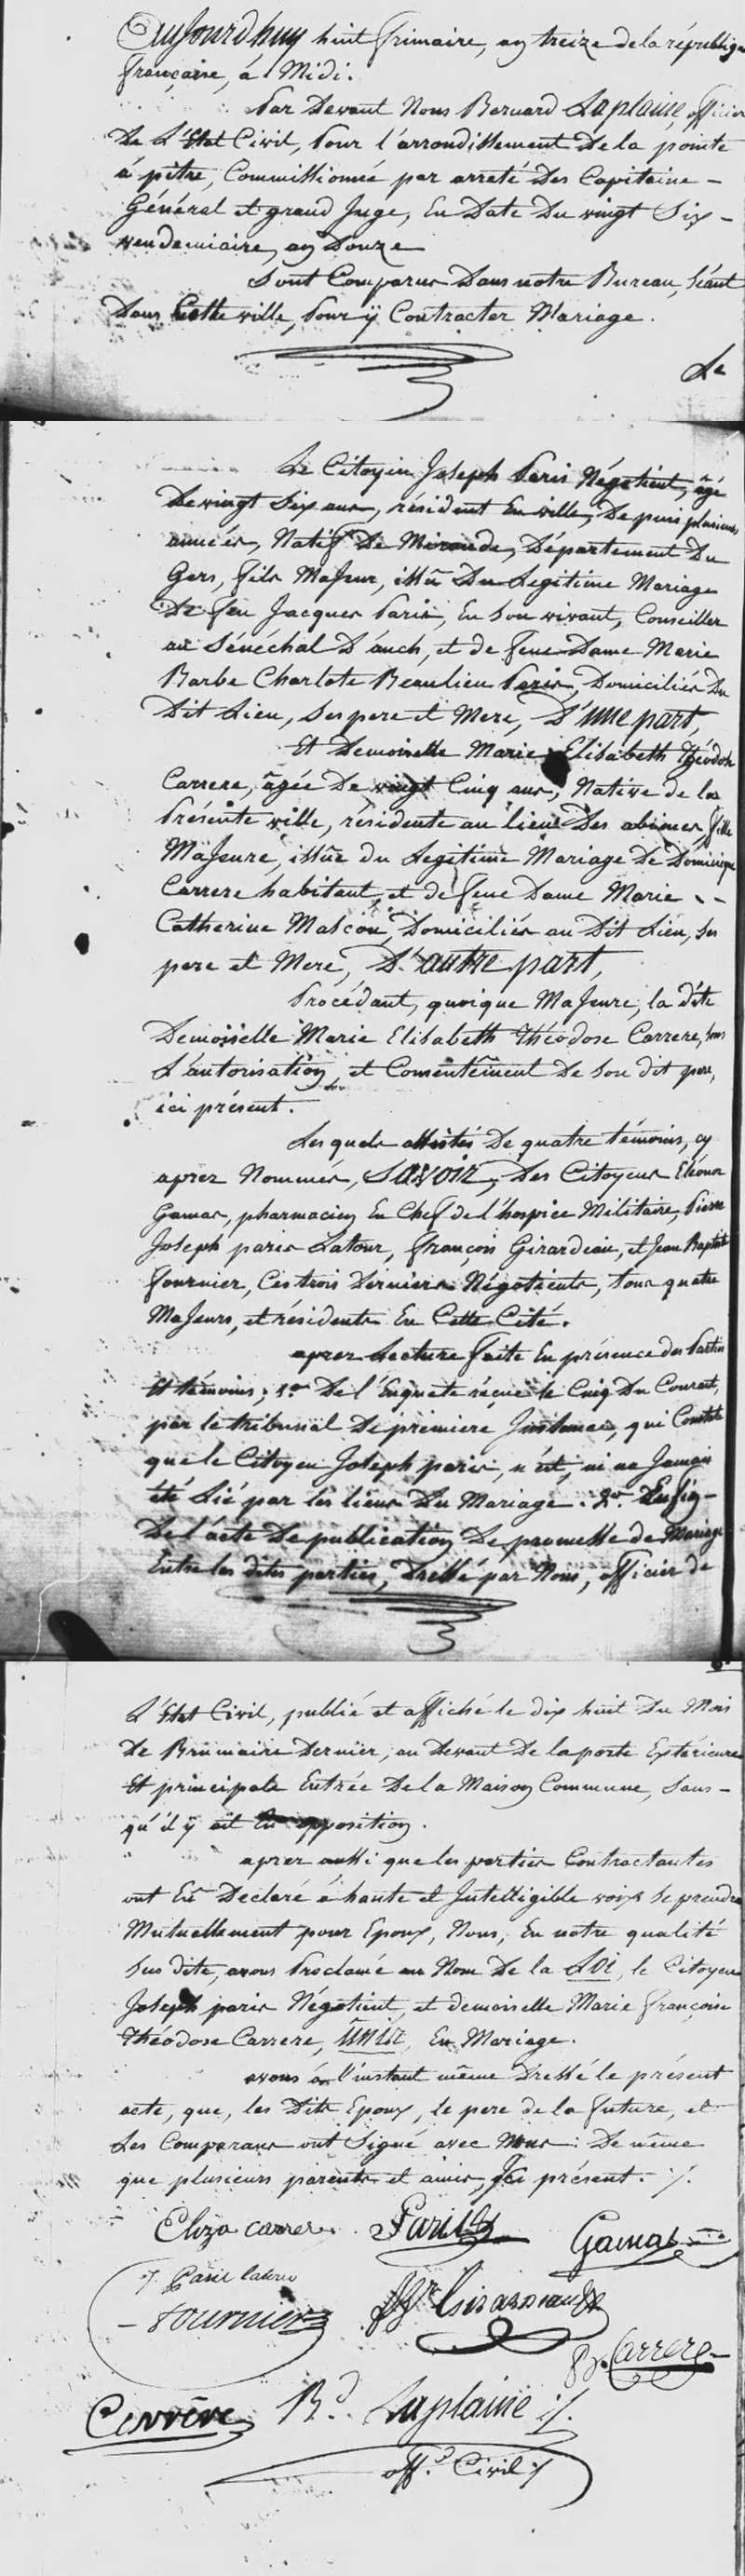 Aujourd'huy huit frimaire, an treize de la république
française, à Midi.
Par Devant Nous Bernard Laplaine, officier
De L'Etat Civil, Pour l'arrondissement De la pointe
à pitre, Commissionné par arreté Des Capitaine -
Général et grand Juge, En Date Du vingt Six -
vendemiaire, an Douze
Sont Comparus Dans notre Bureau, Séant
Dans Cette ville, Pour ÿ Contracter Mariage.
Le
Le Citoyen Joseph Paris Négotient, âgé
De vingt Six ans, résident En ville, De puis plusieurs
années, Natif De Mirande, Département Du
Gers, fils Majeur, issû Du Legitime Mariage
De feu Jacques Paris, En Son vivant, Conseiller
au Sénéchal D'auch, et de feue Dame Marie
Barbe Charlote Beaulieu Paris, Domiciliés Du
Dit Lieu, Ses pere et Mere, D'une part,
Et Demoiselle Marie Elisabeth Théodose
Carrere, âgée De vingt Cinq ans, Native de la
Présente ville, résidente au lieu Des abimes, fille
Majeure, issûe du Legitime Mariage De Dominique
Carrere habitant, et de feue Dame Marie - -
Catherine Mascou, Domiciliés au Dit Lieu, Ses
pere et Mere, D'autre part,
Procédant, quoique Majeure, la d'ite
Demoiselle Marie Elisabeth Théodose Carrere, sous
L'autorisation, et Consentement De Son dit pere,
ici présent.
Les quels assistés De quatre témoins, cy
aprez Nommés, Savoir, Des Citoyens Eléonor
Gamas, pharmacien En Chef de l'hospice Militaire, Pierre
Joseph paris Latour, françois Girardeau, et Jean Baptiste
Fournier, Ces trois Derniers Négotients, tous quatre
Majeurs, et résidents En Cette Cité.
aprez Lecture faite En présence des Parties
Et témoins; 1° De l'Enquete réçue le Cinq Du Courant,
par le tribunal De premiere Instance, qui Constate
que le Citoyen Joseph paris, n'est, ni na Jamais
été Lié par les liens Du Mariage. 2° Enfin -
De l'acte De publication De promesse de Mariage
Entre les dites parties, Dressé par Nous, officier de
L'Etat Civil, publié et affiché le dix huit Du Mois
De Brumaire Dernier, au Devant De la porte Extérieure
Et principale Entrée De la Maison Commune, Sans -
qu'il ÿ ait Eu opposition.
aprez aussi que les parties Contractantes
ont Eû Declaré à haute et Intelligible voix Se prendre
Mutuellement pour Epoux, Nous, En notre qualité
Sus dite, avons Proclamé au Nom De la Loi, le Citoyen
Joseph paris Négotient, et demoiselle Marie françoise
Théodose Carrere, ûnir, En Mariage.
avons à l'instant même Dressé le présent
acte, que, les Dits Epoux, le pere de la future, et
Les Comparans ont Signé avec Nous: De même
que plusieurs parents et amis, Ici présent. ./.
Eliza carrere. Paris Gamas
Paris latour
Fournier Girardeau
Carrere
Carrère Bd. Laplaine ./.
offr. Civil ./